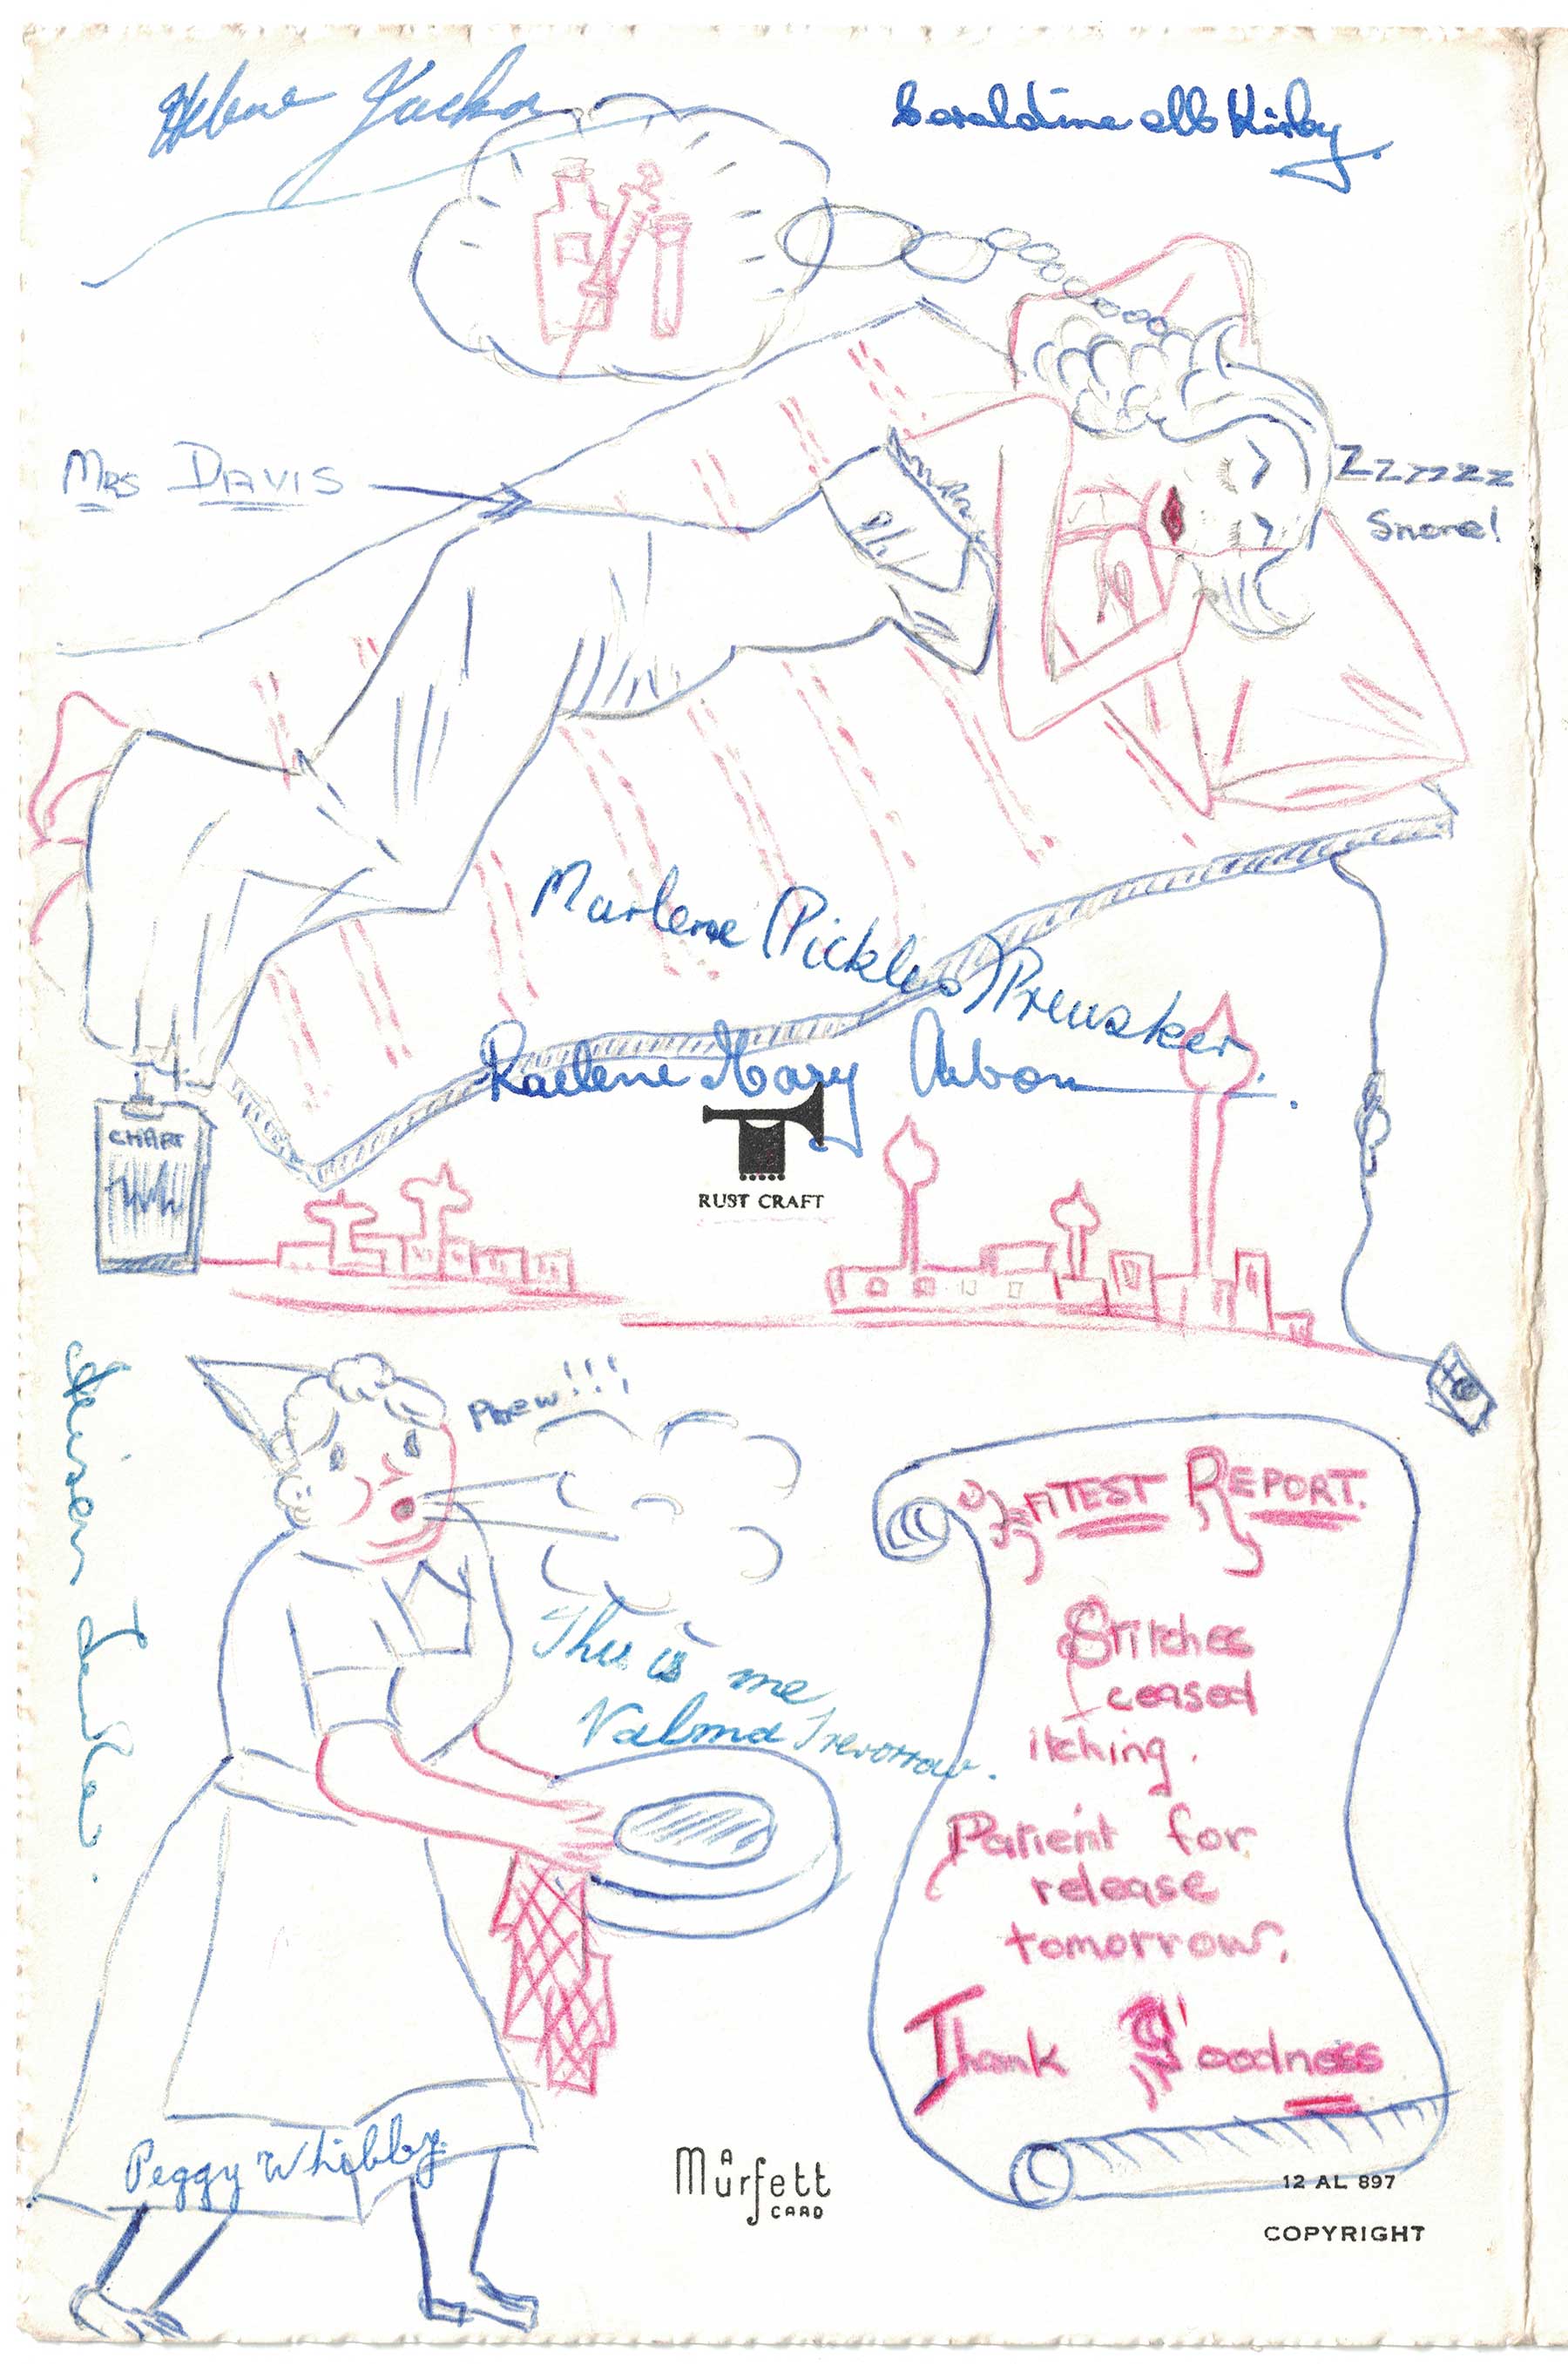 Helene
Geraldine Kirby.
MRS DAVIS
ZZZZZZZ
Snore!
Marlene (Pickles) Preusker
Raelene Mary Arbon.
CHART
RUST CRAFT
Phew!!!
This is me
Valma Trevorrow.
TEST REPORT.
Stitches
ceased
itching.
Patient for
release
tomorrow.
Thank Goodness
Peggy Whibby.
A
Murfett
CARD
12 AL 897
COPYRIGHT